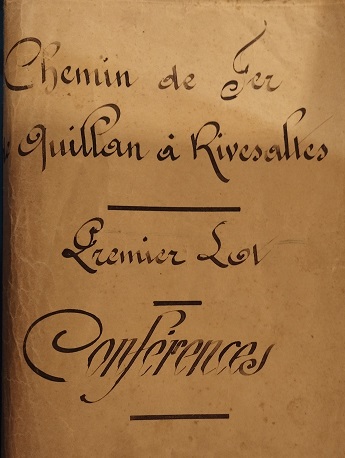 Chemin de Fer
Quillan à Rivesaltes
Premier Lot
Conférences